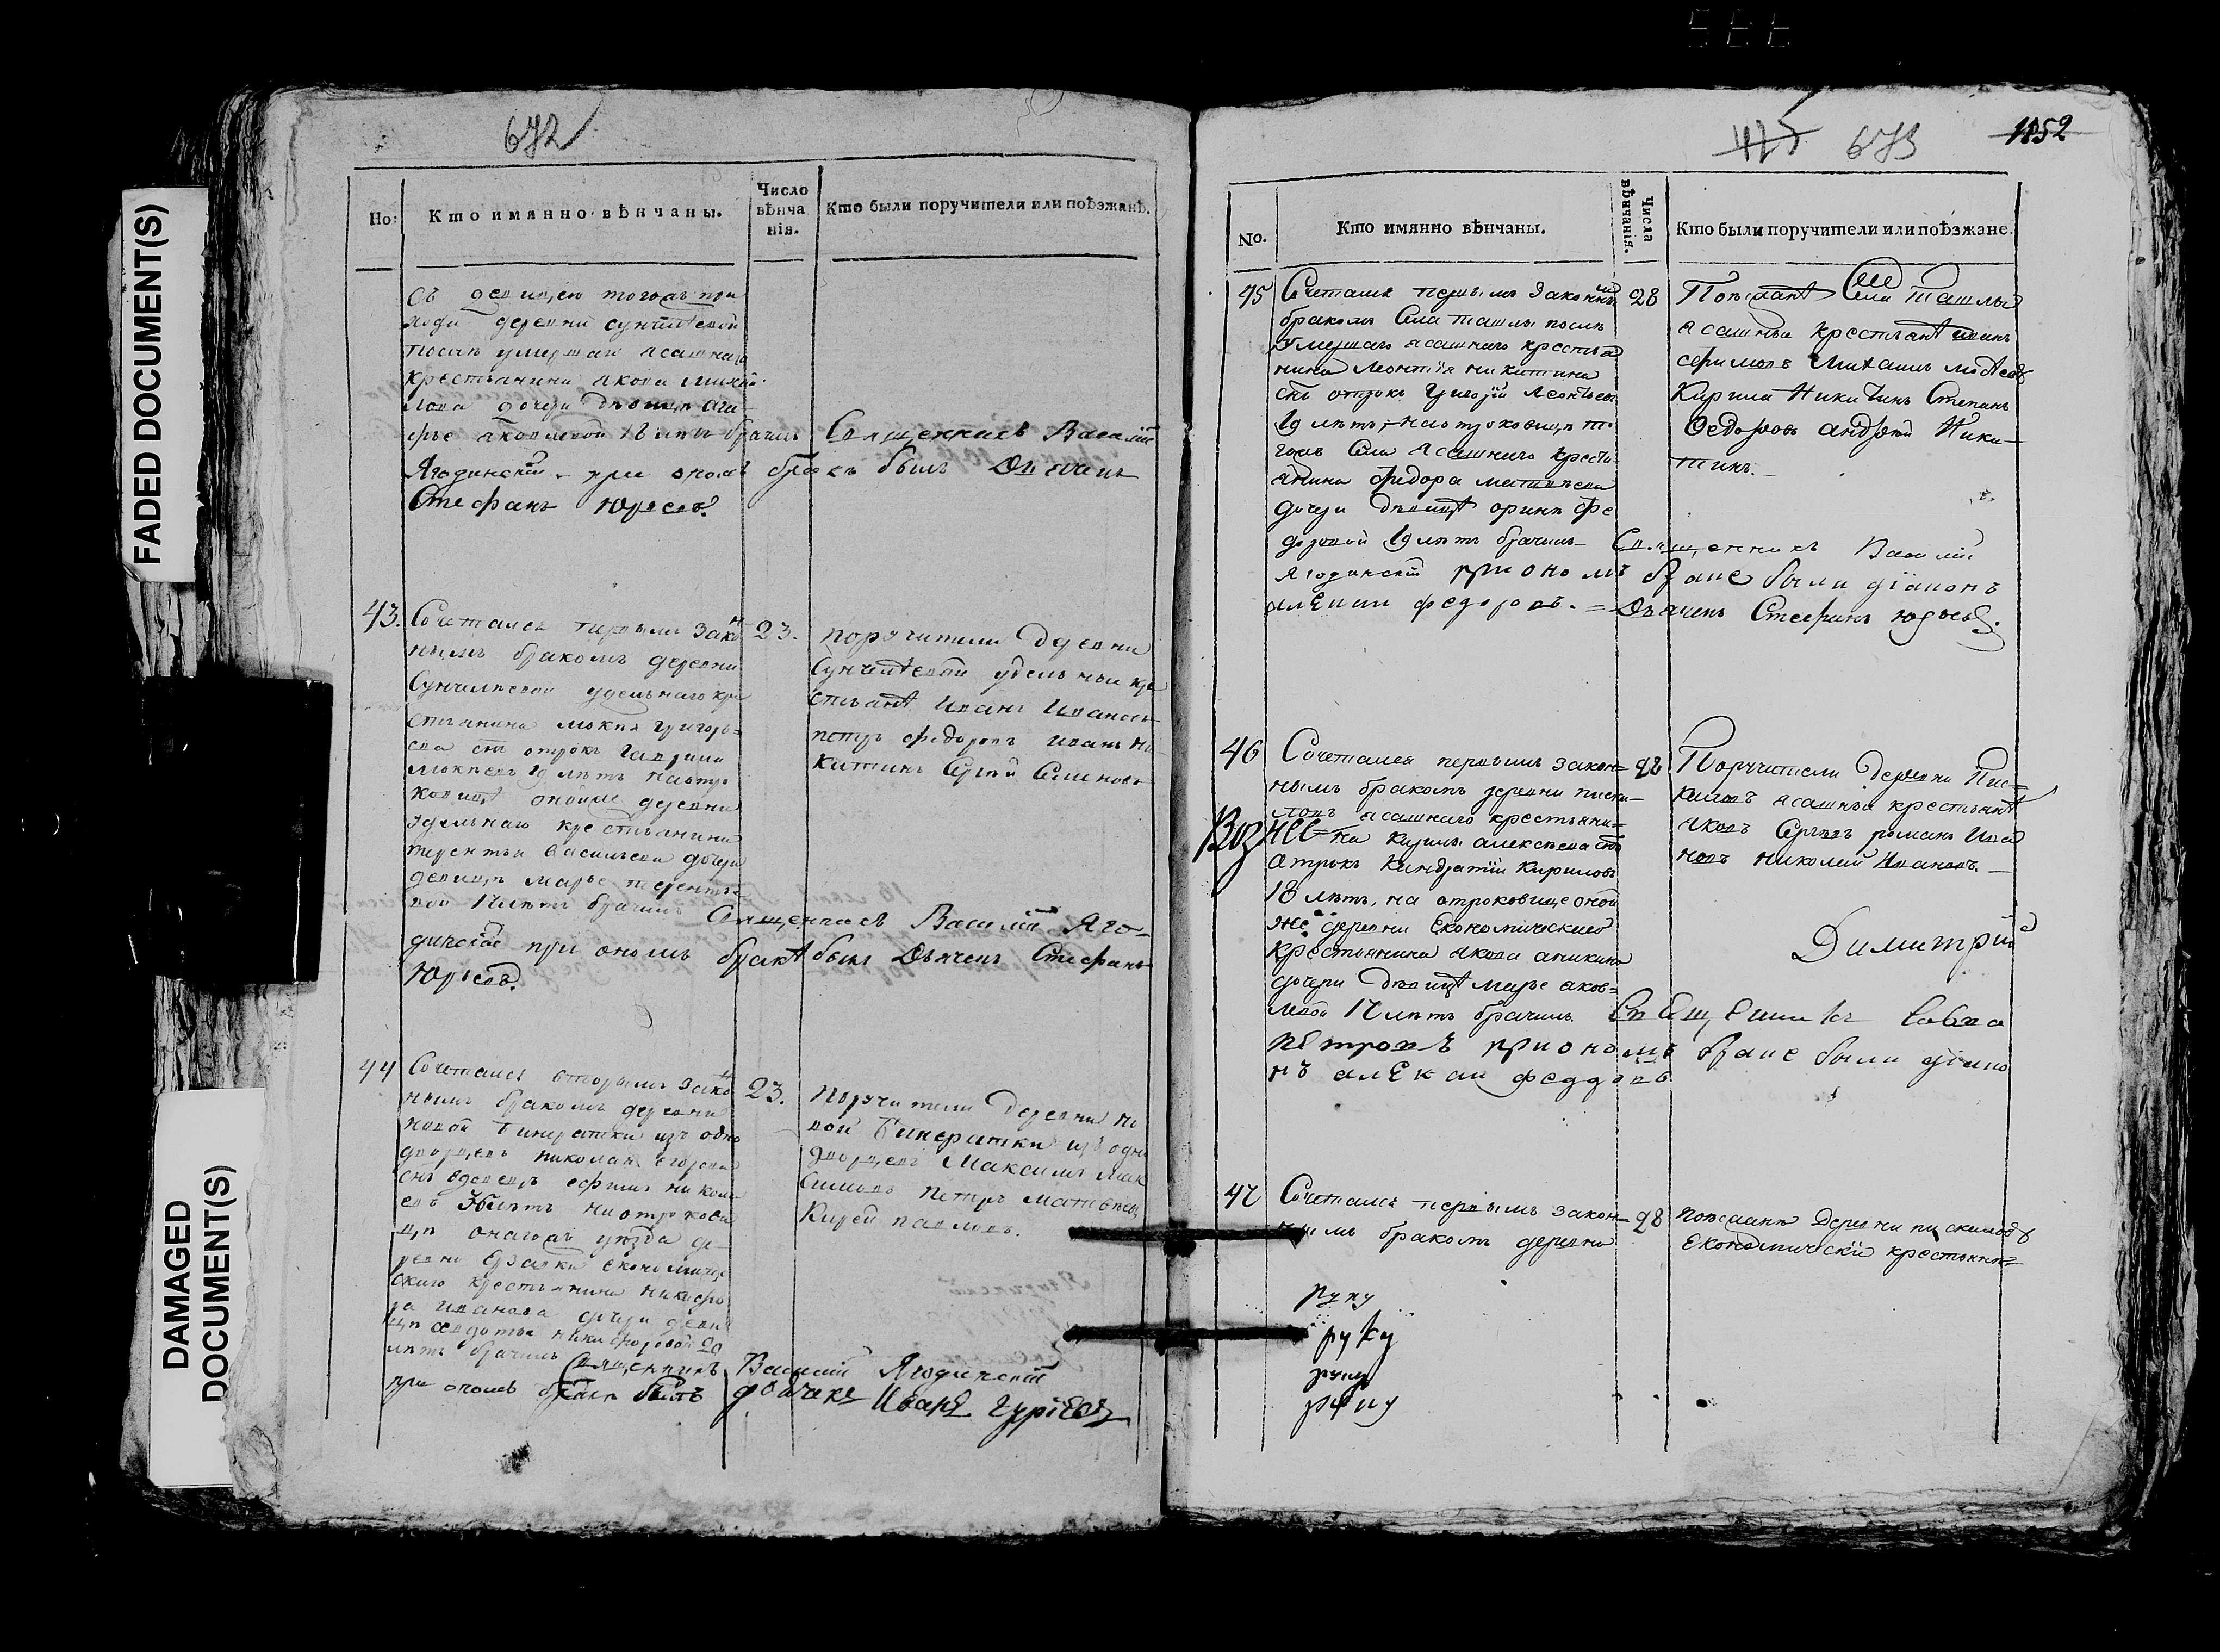 FADED DOCUMENT(S)
DAMAGED
DOCUMENT(S)
672
Но:
Кто имянно вѣнчаны.
Число
вѣнча
нія.
Кто были поручители или поѣзжанѣ.
съ девицею тогожъ при
хода деревни сунчелѣевой
послѣ умершаго ясашнаго
крестьянина якова михай
лова дочери девицѣ ага
фье яковлевой 18 лѣтъ брачилъ Священникъ Василій
Ягодинскій при ономъ бракѣ былъ Дьячекъ
Стефанъ Юрьевъ.
43.
Сочетался первымъ закон
нымъ бракомъ деревни
Сунчелѣевой удельнаго кре
стьянина мокѣя григорь=
ева снъ отрокъ гаврила
мокѣевъ 19 лѣтъ на отро
ковицѣ оной же деревни
удельнаго крестьянина
терентья васильева дочери
девицѣ марье терентье
вой 17 лѣтъ брачилъ Священникъ Василій Яго-
динскій при ономъ бракѣ былъ Дьячекъ Стефанъ
Юрьевъ.
23.
поручители Деревни
Сунчелѣевой удельныи кре
стьянѣ Иванъ Ивановъ
петръ федоровъ иванъ Ни
китинъ Сергѣй Семеновъ
44
Сочетался вторымъ закон
нымъ бракомъ деревни
новой Бинератки изъ одно
дворцевъ николая егорова
снъ вдовецъ ефимъ никола
евъ лѣтъ на отрокови
цѣ онагожъ уѣзда де
ревни Ерзавки економиче
скаго крестьянина никифо
ра иванова дочери деви
цѣ авдотье никифоровой 20
лѣтъ брачилъ Священникъ Василій Ягодинскій
при ономъ бракѣ былъ дьячекъ Иванъ гуріевъ
23.
поручители Деревни Но
вой Бинератки изъ одно
дворцевъ Максимъ Мак
симовъ петръ матвѣевъ
Кирей павловъ.
673
1852
No.
Кто имянно вѣнчаны.
Числа
вѣнчанія.
Кто были поручители или поѣзжане.
45
Сочетался первымъ законны
бракомъ Села ташлы послѣ
Умершаго ясашнаго крестья
нина леонтія никитина
снъ отрокъ григорій леонтьевъ
19 лѣтъ, на отроковицѣ то
гожъ Села ясашнаго крестья
янина федора матвѣева
дочери девицѣ орине фе
доровой 19 лѣтъ брачилъ Священникъ Василій
Ягодинскій при ономъ браке были діаконъ
алексѣи федоровъ. = Дьячекъ Стефанъ Юрьевъ.
28
Поѣзжанѣ Села Ташлы
ясашныя крестьянѣ иванъ
ефимовъ Михаилъ
Кирила Никитинъ Степанъ
Федоровъ андрѣй Ники-
тинъ.
46
Сочетался первымъ закон=
нымъ бракомъ деревни писка-
ловъ ясашнаго крестьяни=
на кирилы алексѣева снъ
отрокъ Кандратій Кириловъ
18 лѣтъ, на отроковице оной
же деревни Економическаго
крестьянина якова аникина
дочери девицѣ марье яков=
левой 17 лѣтъ брачилъ Священникъ Савва
петровъ при ономъ браке были діако
нъ алексѣи феддоровъ
28
Поручители Деревни Пис=
каловъ ясашныя крестьянѣ
яковъ Сергѣевъ романъ Ива
новъ николай Ивановъ.
Возне=
Димитрій
47
Сочетался первымъ закон=
нымъ бракомъ деревни
28
поѣзжанѣ Деревни пискаловъ
Економическія крестьяня=
руку
руку
руку
руку